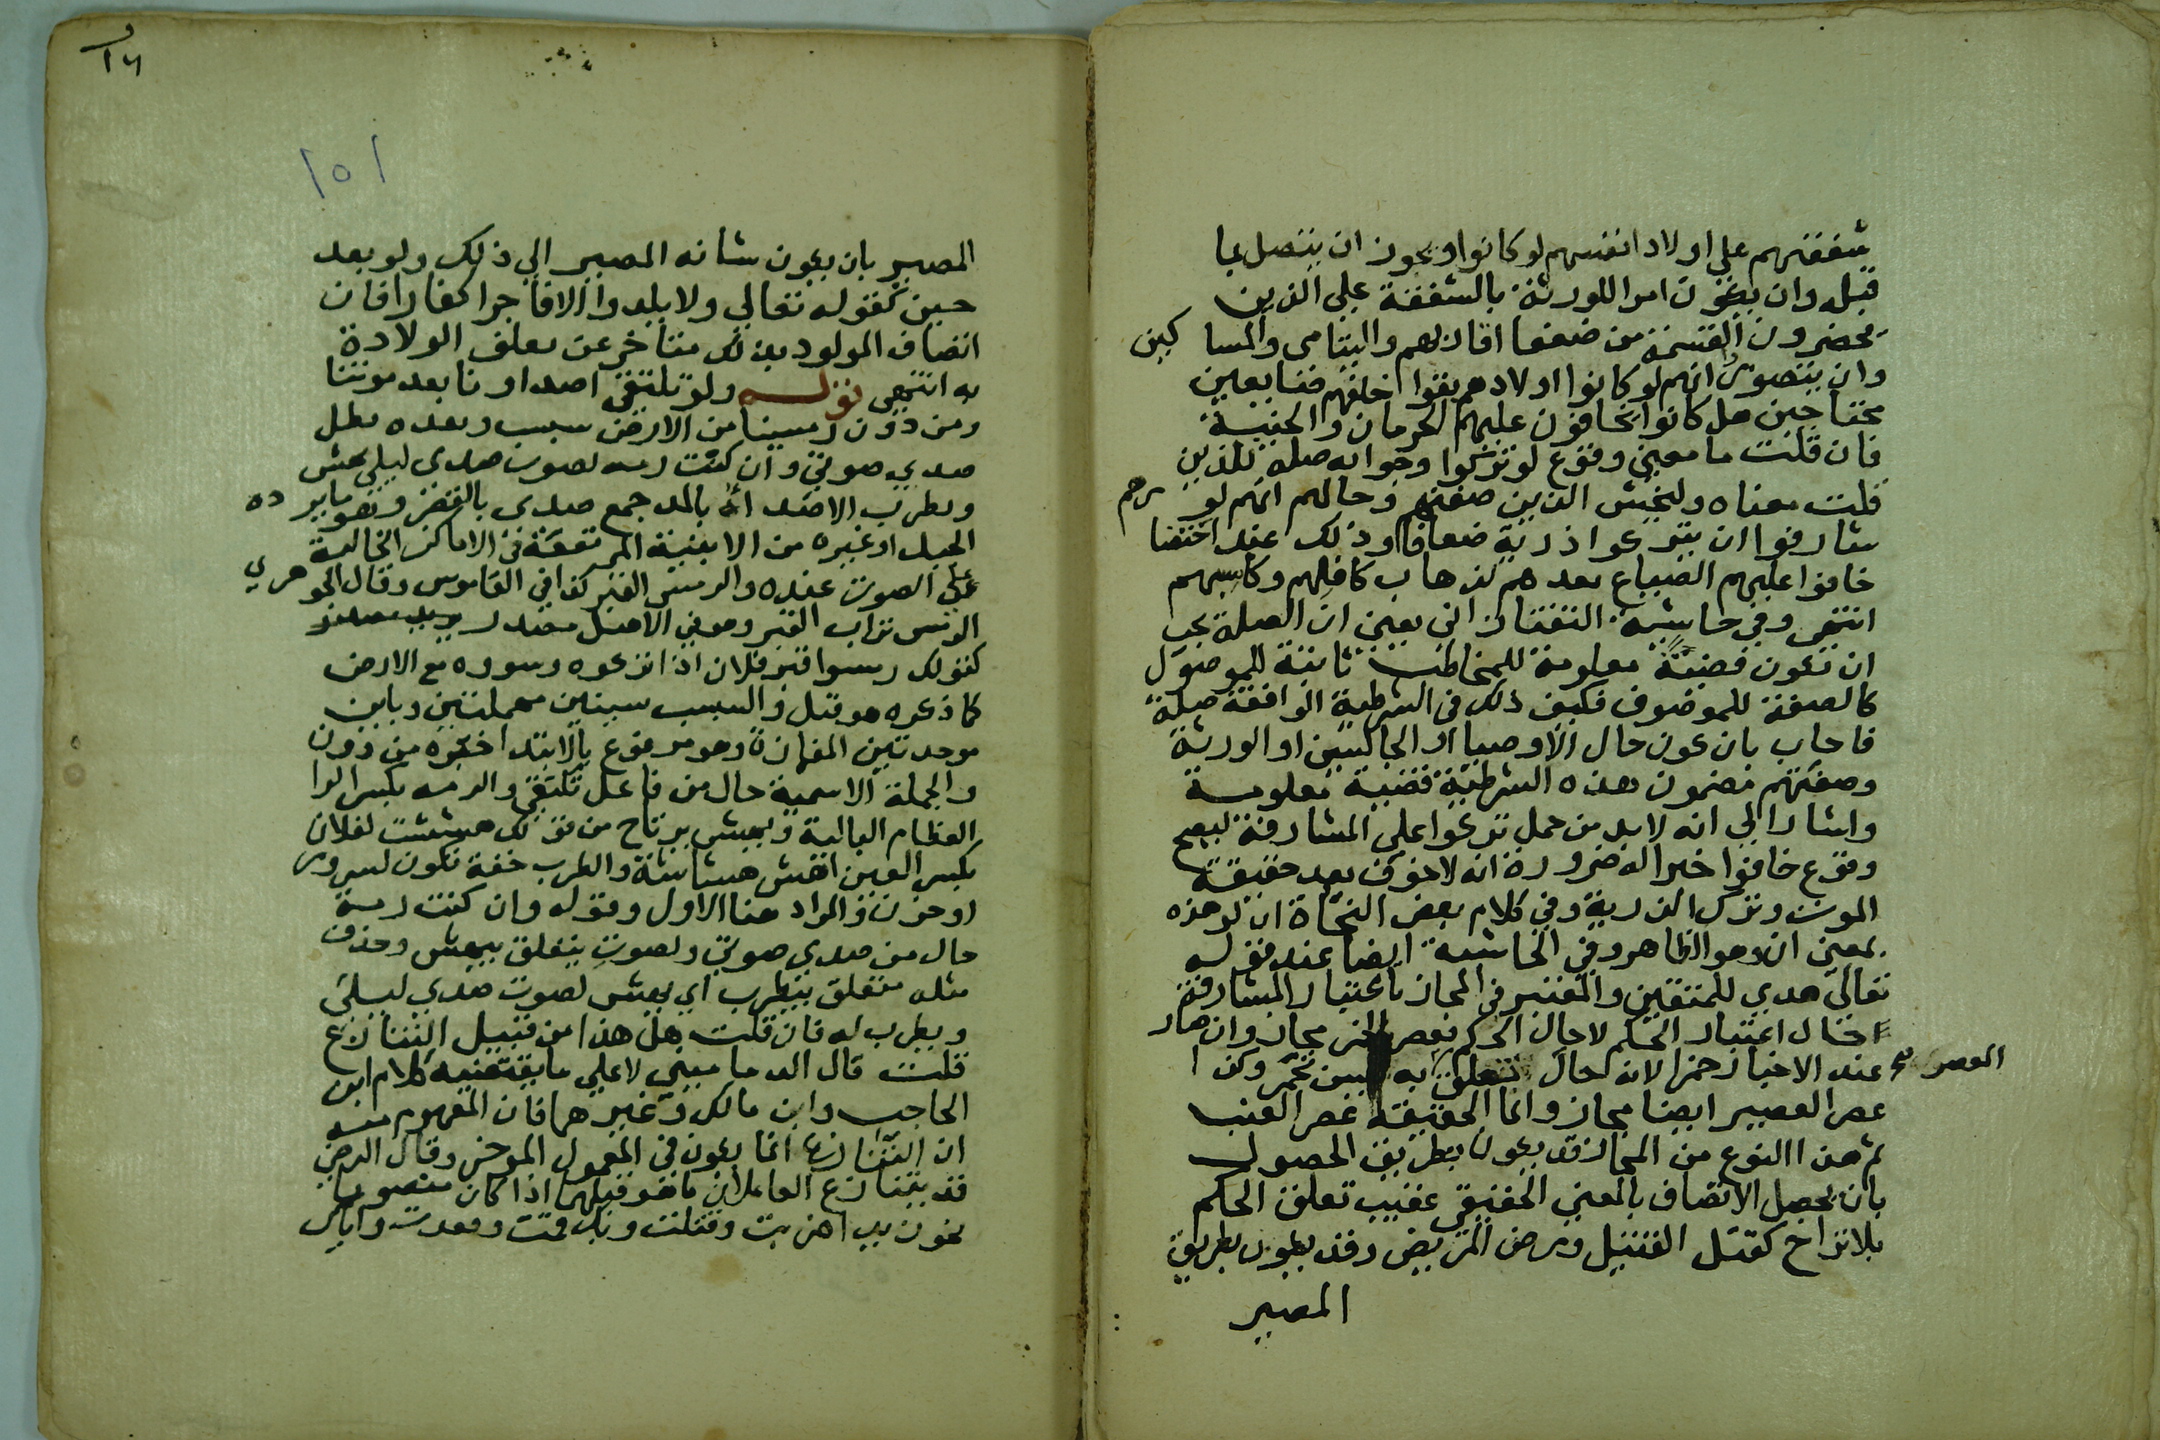 شفقتهم علي اولاد انفسهم لو كانوا ويجوز ان يتصل بما
قبله وان يكون امرا للورثة بالشفقة علي الذين
يحضرون القسمة من ضعفا اقاربهم واليتامى والمساكين
وان يتصوروا انهم لو كانوا اولادهم بقوا خلفهم ضايعين
محتاجين هل كانوا يخافون عليهم الحرمان والخيبة
فان قلت ما معني وقوع لو تركوا وجوابه صلة للذين
قلت معناه وليخش الذين صفتهم وحالهم انهم لو
شارفوا ان يتركوا ذرية ضعافا وذلك عند احتضارهم
خافوا عليهم الضياع بعدهم لذهاب كافلهم وكاسبهم
انتهى وفي حاشية التفتازاني يعني ان الصلة يجب
ان تكون قضية معلومة للمخاطب ثابتة للموصول
كالصفة للموصوف فكيف ذلك في الشرطية الواقعة صلة
فاجاب بان كون حال الاوصيا او الجالسين او الورثة
وصفتهم مضمون هذه الشرطية قضية معلومة
واشار الي انه لابد من حمل تركوا علي المشارفة ليصح
وقوع خافوا خبرا له ضرورة انه لا خوف بعد حقيقة
الموت وترك الذرية وفي كلام بعض النحاة ان لو هذه
بمعني ان وهو الظاهر وفي الحاشية ايضا عند قوله
تعالي هدي للمتقين والمعتبر في المجاز باعتبار المشارفة
حال اعتبار الحكم لا حال الحكم فعصر الخمر مجاز وان صار
العصير صح عند الاخبار خمرا لانه حال تعلق به ليس بخمر وكذا
عصر العصير ايضا مجاز وانما الحقيقة عصر العنب
ثم هذا النوع من المجاز قد يكون بطريق الحصول
بان يحصل الاتصاف بالمعني الحقيقي عقيب تعلق الحكم
بلا تراخ كقتل القتيل ومرض المريض وقد يكون بطريق
المصير
١٦
١٥١
المصير بان يكون شانه المصير الي ذلك ولو بعد
حين كقوله تعالي ولا يلدوا الا فاجرا كفارا فان
اتصاف المولود بذلك متاخر عن تعلق الولادة
به انتهى قوله ولو تلتقي اصداونا بعد موتنا
ومن دون رمسينا من الارض سبسب وبعده لظل
صدي صوتي وان كنت رمه لصوت صدي ليلي يهش
ويطرب الاصدا بالمد جمع صدي بالقصر وهو ما يرده
الجبل او غيره من الابنية المرتفعة في الاماكن الخالية
علي الصوت عنده والرمس القبر كذا في القاموس وقال الجوهري
الرمس تراب القبر وهو في الاصل مصدر
كقولك رمسوا قبر فلان اذا كتموه وسووه مع الارض
كما ذكره هو قبل والسبسب بسينين مهملتين وباين
موحدتين المفازة وهو مرفوع بالابتدا خبره من دون
والجملة الاسمية حال من فاعل تلتقي والرمه بكسر الرا
العظام البالية ويهش يرتاح من قولك هششت لفلان
بكسر العين اهش هشاشة والطرب خفة تكون لسرور
او حزن والمراد هنا الاول وقوله وان كنت رمة
حال من صدي صوتي ولصوت يتعلق بيهش وحذف
مثله متعلق بيطرب اي يهش لصوت صدي ليلي
ويطرب له فان قلت هل هذا من قبيل التنازع
قلت قال الدماميني لا علي ما يقتضيه كلام ابن
الحاجب وابن مالك وغيرهما فان المفهوم منه
ان التنازع انما يكون في المعمول الموخر وقال الرضي
قد يتنازع العاملان ما هو قبلهما اذا كان منصوبا
نحو زيدا ضربت وقتلت وبك قمت وقعدت واياك